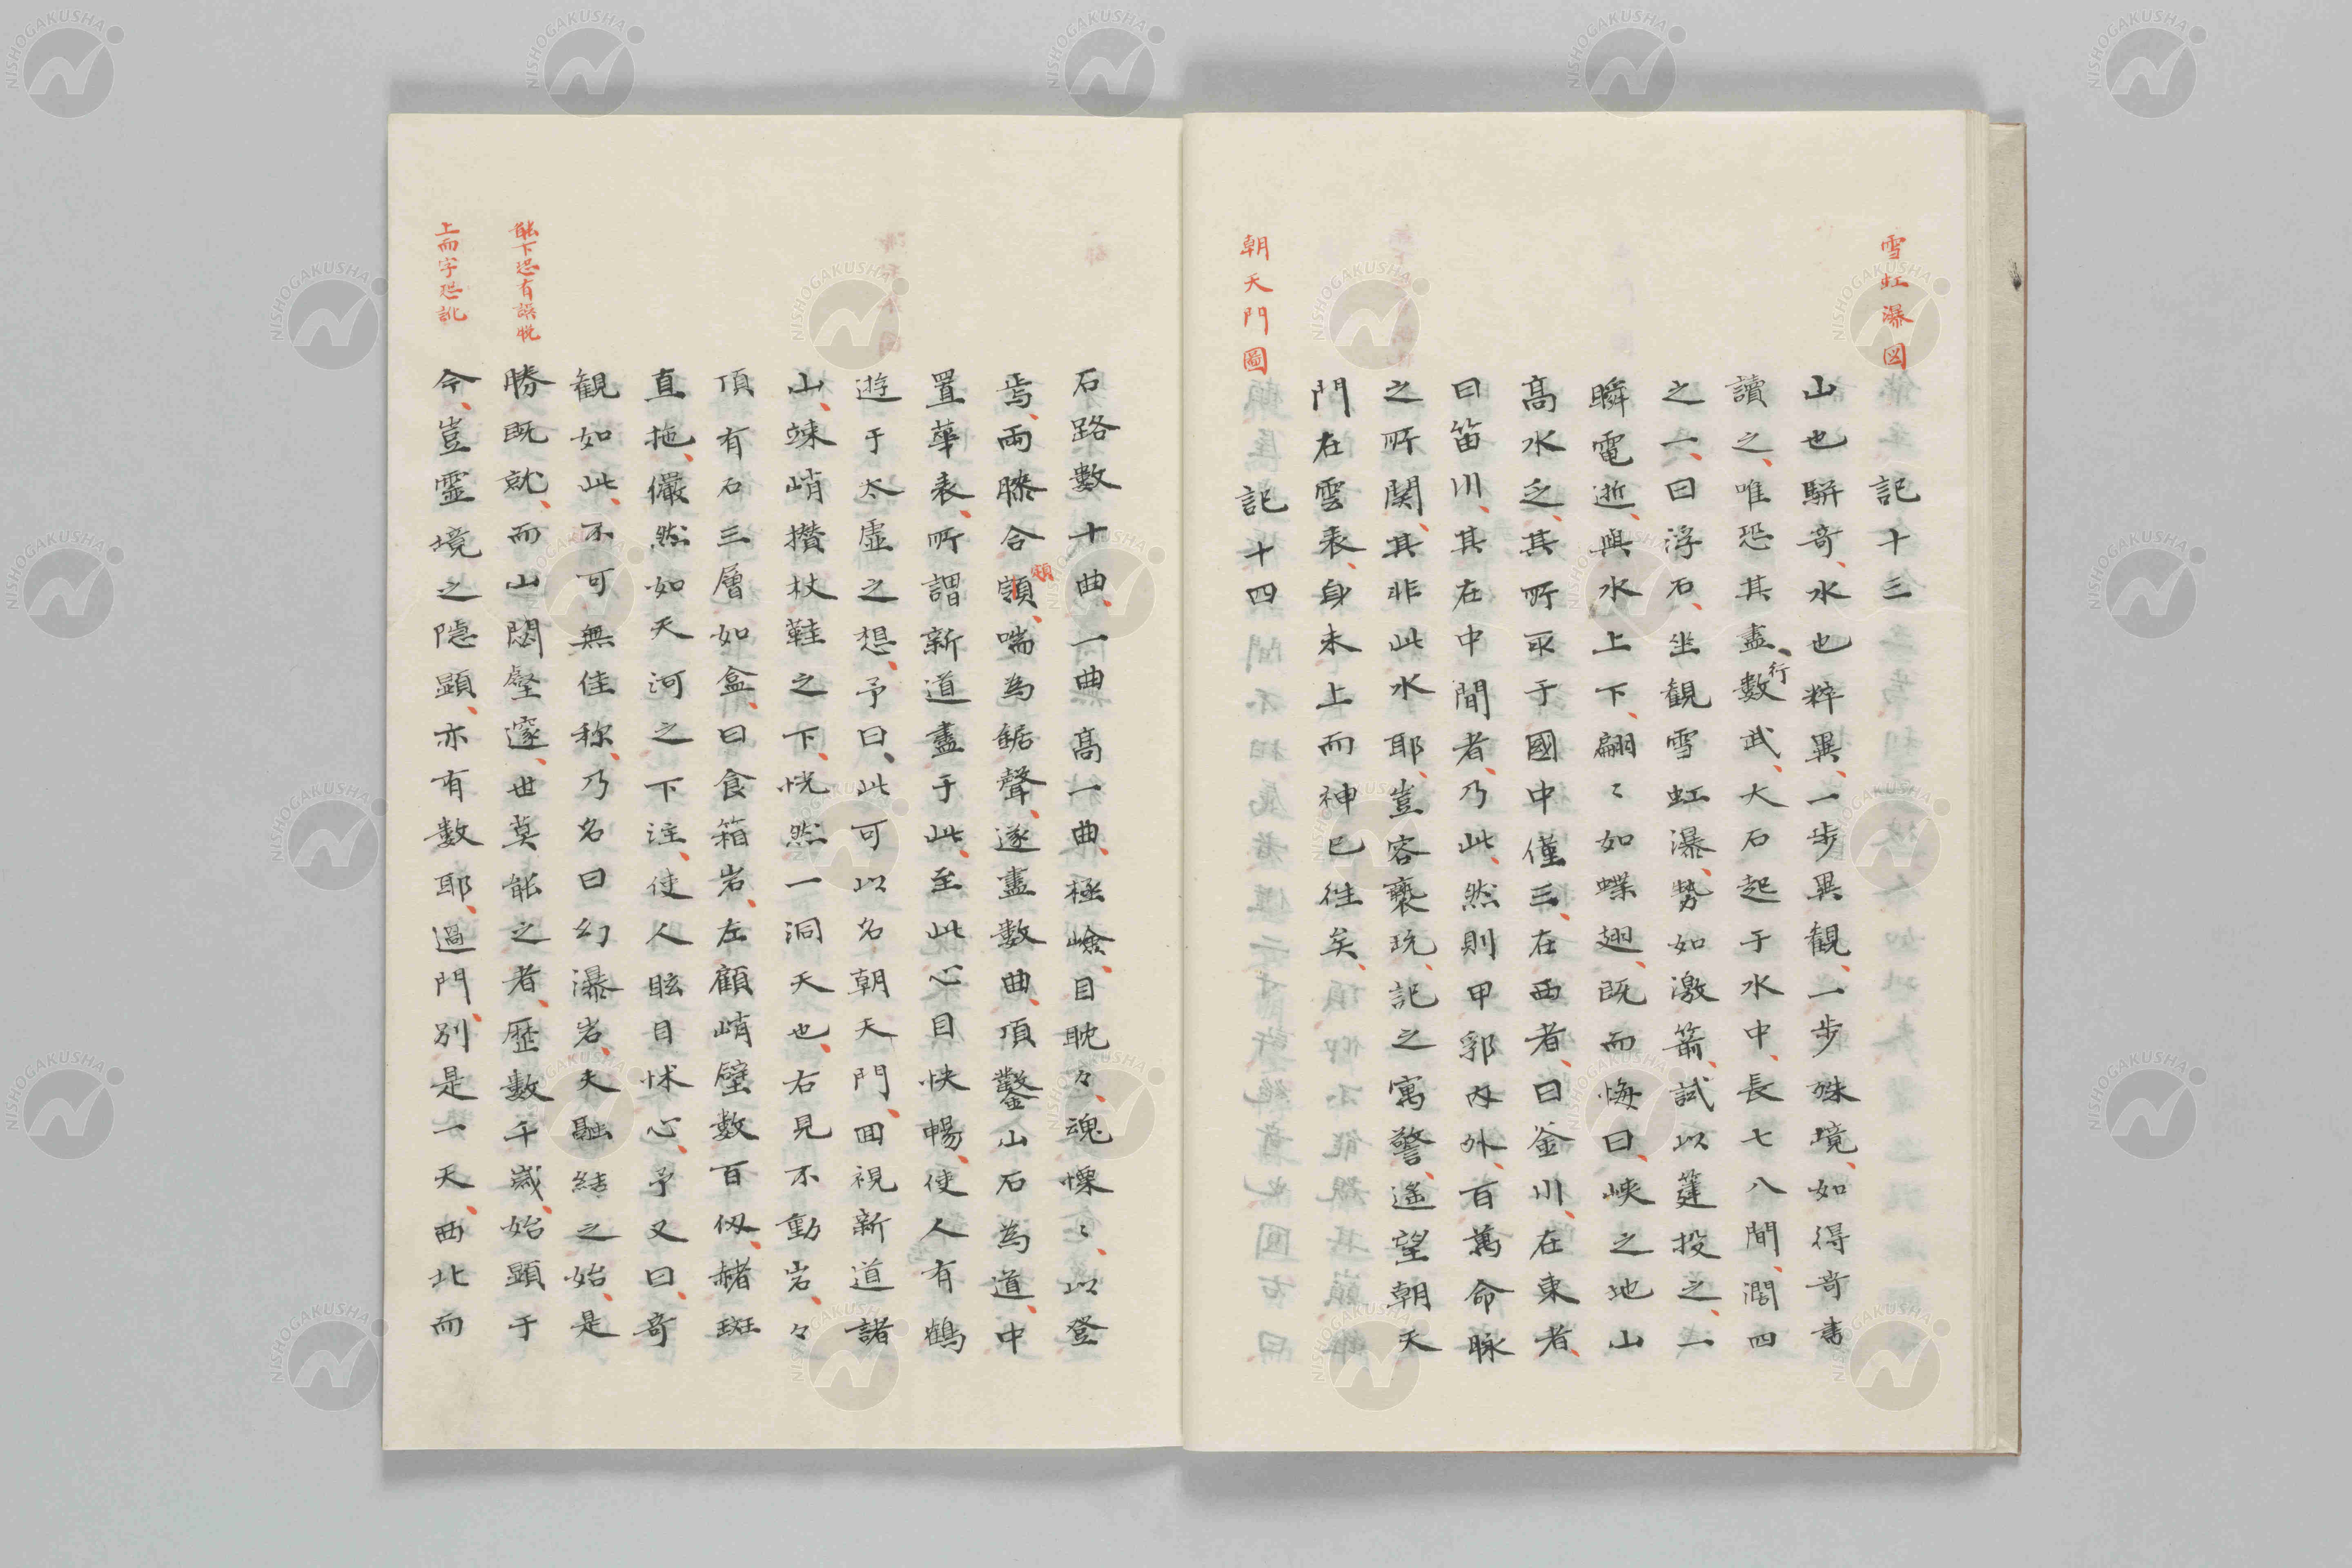 雪虹瀑図
記十三
山也駢奇、水也粹異、一步異観、一步殊境、如得奇書
讀之、唯恐其盡、行數武、大石起于水中、長七八間、濶四
之一、曰浮石、坐観雪虹瀑、勢如激箭、試以莛投之、一
瞬電逝、與水上下、翩〻如蝶翅、既而悔曰、峽之地山
高水乏、其所取于國中僅三、在西者、曰釜川、在東者、
曰笛川、其在中間者、乃此、然則甲郭内外、百萬命脉
之所関、其非此水耶、豈容褻玩、記之寓警、遙望朝天
門在雲表、身未上而神已徃矣、
朝天門圖
記十四
石路數十曲、一曲高一曲、極嶮、目眈々、魂慄〻、以登
焉、兩膝合頷、頬喘為鋸聲、遂盡數曲、頂鑿山石為道、中
置華表、所謂新道盡于此、至此心目快暢、使人有鶴
遊于太虛之想、予曰、此可以名朝天門、囬視新道諸
山、竦峭攅杖鞋之下、恍然一洞天也、右見不動岩、々
頂有石三層如盒、曰食箱岩、左顧峭壁數百仭、赭斑
直拖、儼然如天河之下注、使人眩目怵心、予又曰、奇
観如此、不可無佳称、乃名曰幻瀑岩、夫融結之始、是
能下恐有誤脱
勝既就、而山閟壑邃、世莫能之者、歷數千歲、始顕于
上而字恐訛
今、豈霊境之隠顕、亦有數耶、過門、別是一天、西北而